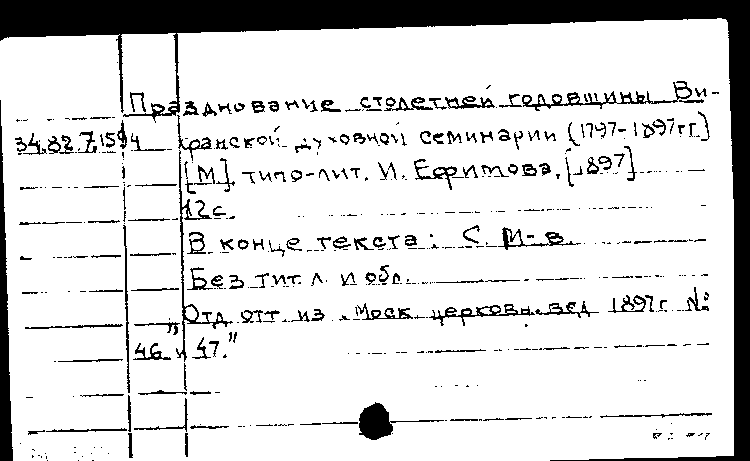 Празднование столетней годовщины Ви-
34.82.7.1594 фанской духовной семинарии (1797-1897 гг.)
[М]. типо-лит. И. Ефимова, [1897]
12 с.
В конце текста: С. М-в.
Без тит. л. и обл.
"Отд. отт. из. Моск. церковн. вед 1897 г №
46 и 47."